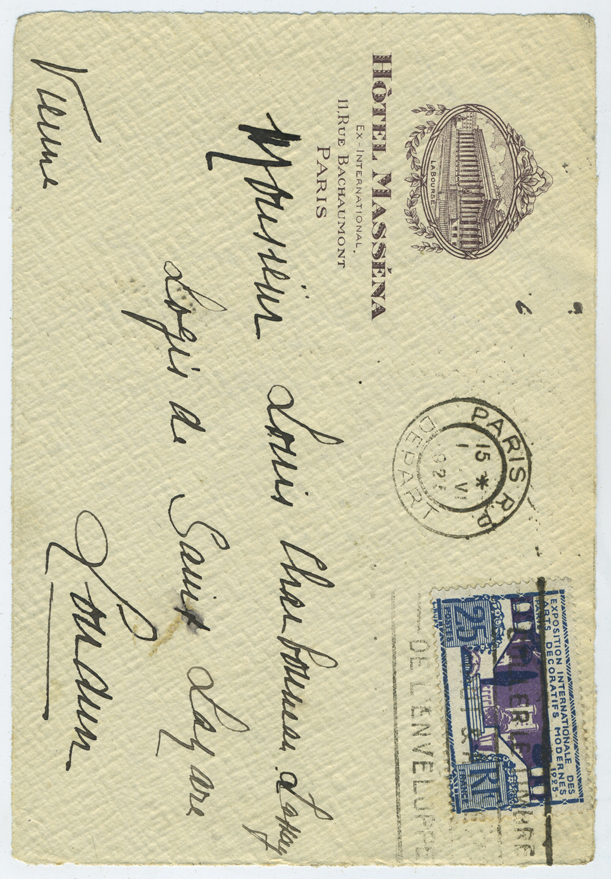 LA BOURSE
HÔTEL MASSÉNA
EX-INTERNATIONAL.
11, RUE BACHAUMONT
PARIS
PARIS R.P.
15 * 1 VI 1925
DEPART
EXPOSITION INTERNATIONALE DES
ARTS DECORATIFS MODERNES
-1925-
25 RF
TIMBRE
DE L'ENVELOPPE
Monsieur Louis Charbonneau-Lassay
Logis de Saint Lazare
Loudun
Vienne